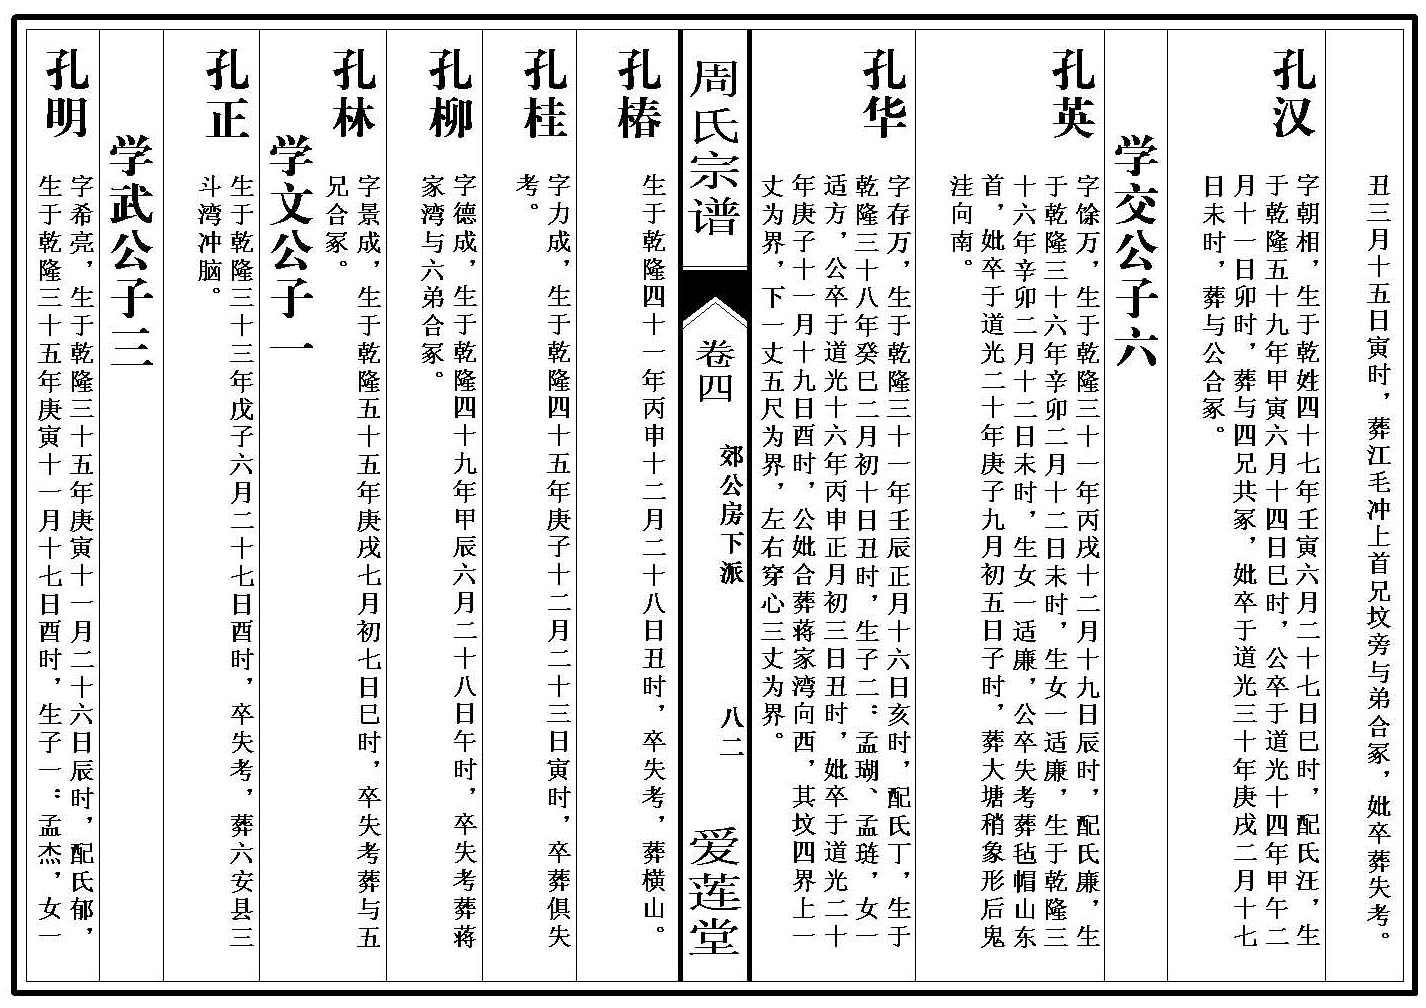 丑三月十五日寅时，葬江毛冲上首兄坟旁与弟合冢，妣卒葬失考。
孔汉
字朝相，生于乾姓四十七年壬寅六月二十七日巳时，配氏汪，生
于乾隆五十九年甲寅六月十四日巳时，公卒于道光十四年甲午二
月十一日卯时，葬与四兄共冢，妣卒于道光三十年庚戌二月十七
日未时，葬与公合冢。
学交公子六
孔英
字馀万，生于乾隆三十一年丙戌十二月十九日辰时，配氏廉，生
于乾隆三十六年辛卯二月十二日未时，生女一适廉，生于乾隆三
十六年辛卯二月十二日未时，生女一适廉，公卒失考葬毡帽山东
首，妣卒于道光二十年庚子九月初五日子时，葬大塘稍象形后鬼
洼向南。
孔华
字存万，生于乾隆三十一年壬辰正月十六日亥时，配氏丁，生于
乾隆三十八年癸巳二月初十日丑时，生子二：孟瑚、孟琏，女一
适方，公卒于道光十六年丙申正月初三日丑时，妣卒于道光二十
年庚子十一月十九日酉时，公妣合葬蒋家湾向西，其坟四界上一
丈为界，下一丈五尺为界，左右穿心三丈为界。
周氏宗谱
卷四
郊公房下派
八二
爱莲堂
孔椿
生于乾隆四十一年丙申十二月二十八日丑时，卒失考，葬横山。
孔桂
字力成，生于乾隆四十五年庚子十二月二十三日寅时，卒葬俱失
考。
孔柳
字德成，生于乾隆四十九年甲辰六月二十八日午时，卒失考葬蒋
家湾与六弟合冢。
孔林
字景成，生于乾隆五十五年庚戌七月初七日巳时，卒失考葬与五
兄合冢。
学文公子一
孔正
生于乾隆三十三年戊子六月二十七日酉时，卒失考，葬六安县三
斗湾冲脑。
学武公子三
孔明
字希亮，生于乾隆三十五年庚寅十一月二十六日辰时，配氏郁，
生于乾隆三十五年庚寅十一月十七日酉时，生子一：孟杰，女一